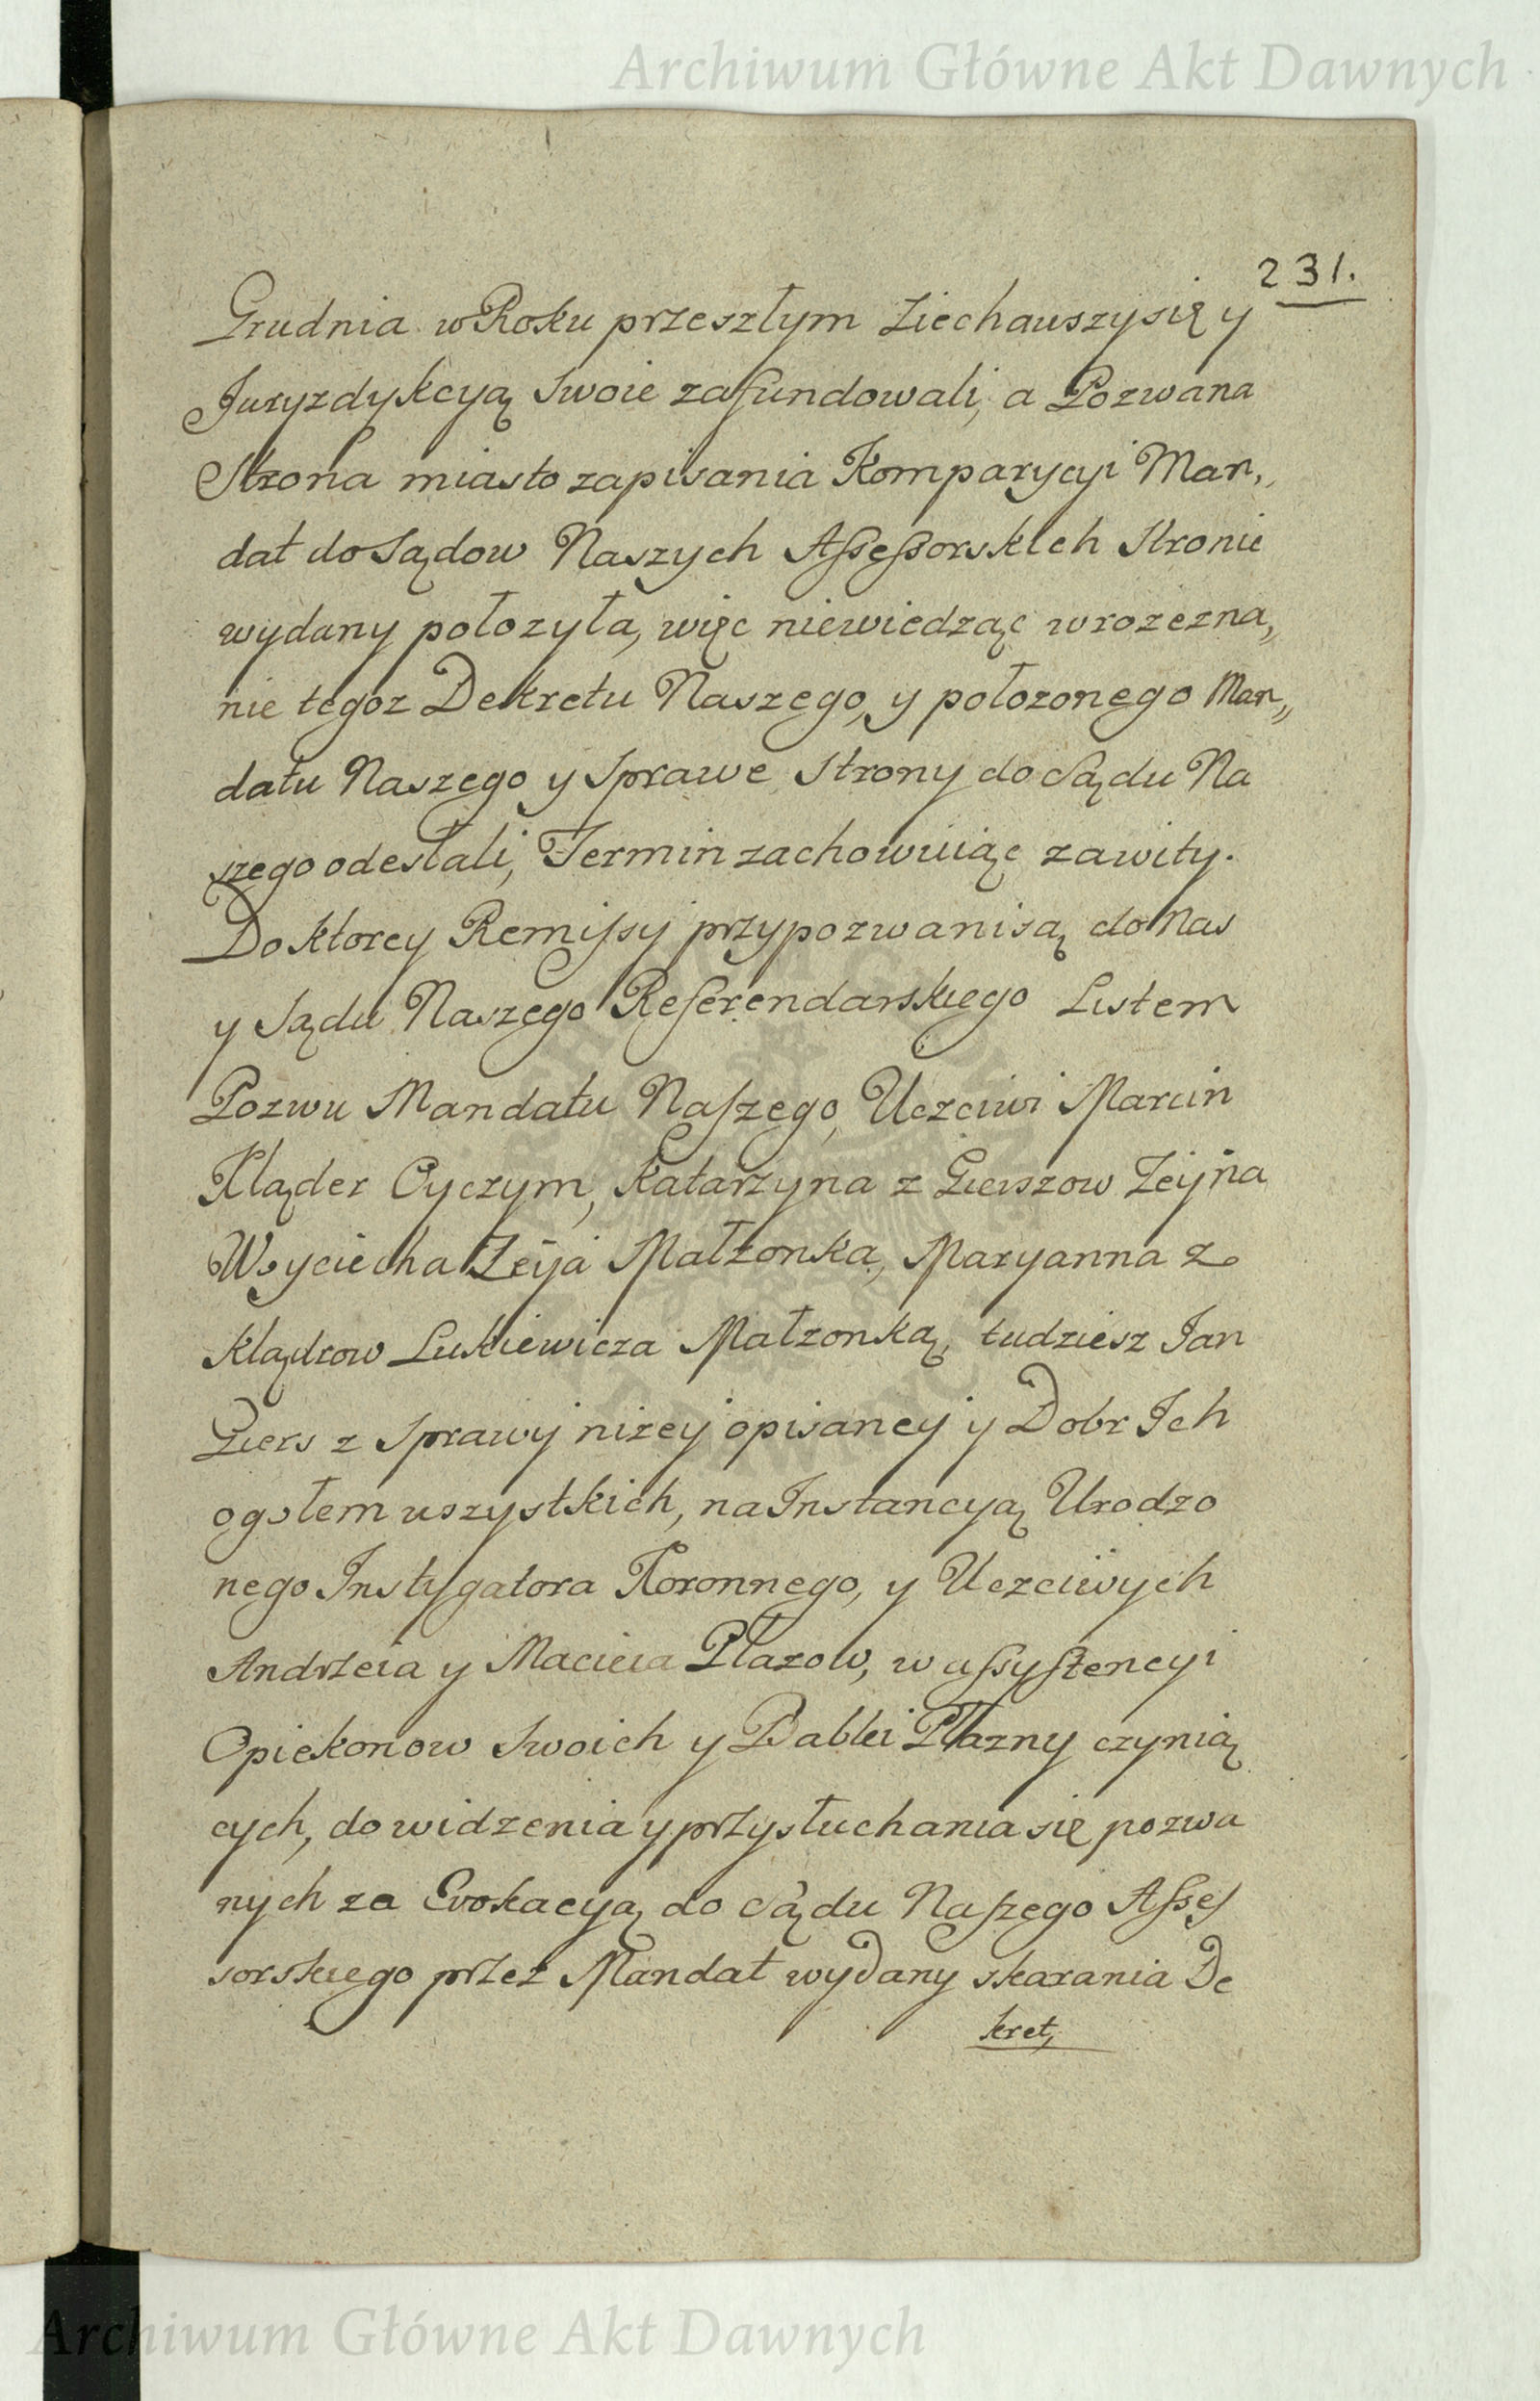 Archiwum Główne Akt Dawnych
231.
Grudnia w Roku przeszłym ziechauszy się y
Juryzdykcyą swoie zafundowali, a Pozwana
Strona miasto zapisania Komparycyi Man„
dat do Sądow Naszych Assessorskich Stronie
wydany położyła, więc niewiedząc wrozezna„
nie tegoz Dekretu Naszego, y położonego Man„
datu Naszego y Sprawe Strony do Sądu Na
szego odesłali, Termin zachowuiąc zawity.
Do ktorey Remissyi przypozwani są do Nas
y Sądu Naszego Referendarskiego Listem
Pozwu Mandatu Naszego, Uczciwi Marcin
Kląder Oyczym, Katarzyna z Gierszow Zeyna
Woyciecha Zeya Małzonka, Maryanna z
Klądrow Lukiewicza Małzonką, tudziesz Jan
Giers z Sprawy nizey opisaney y Dobr Ich
ogołem wszystkich, na Instancyą Urodzo
nego Instygatora Koronnego, y Uczciwych
Andrzeia y Macieia Płazow, w assystencyi
Opiekonow Swoich y Babki Płazny czynią
cych, do widzenia y przysłuchania się pozwa
nych za Evokacyą do Sądu Naszego Asses
sorskiego przez Mandat wydany skarania De
kret,
Archiwum Główne Akt Dawnych